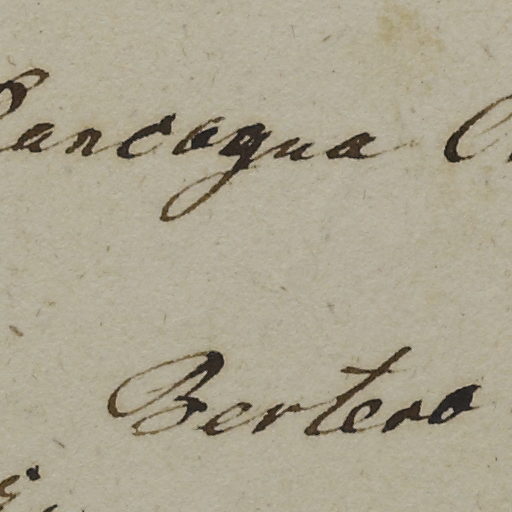 Rancagua
Bertero